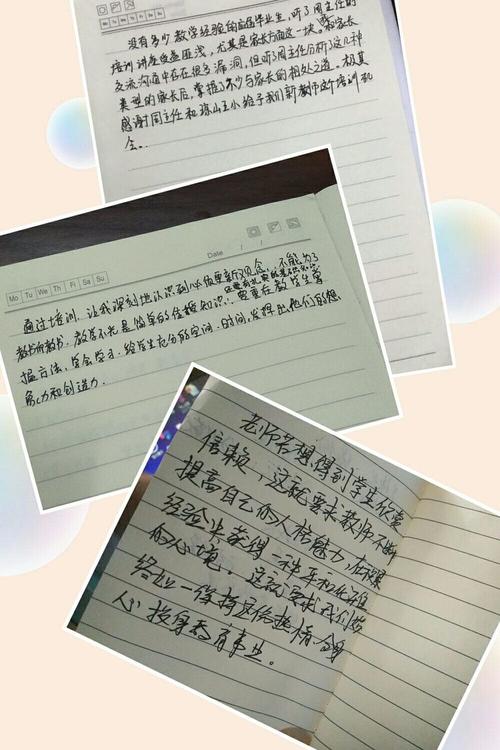 没有多少教学经验的应届毕业生，听了周主任的
培训讲座受益匪浅，尤其是家长方面这一块。和家长
交流沟通中存在很多漏洞，但听了周主任分析了这几种
类型的家长后，掌握了不少与家长的相处之道。极其
感谢周主任和琼山三小给予我们新教师这个培训机
会。
Date
Mo Tu We Th Fr Sa Su
通过培训，让我深刻地认识到必须更新观念，不能为了
教书而教书。教学不光是简单的传授知识，要重在教学生掌
握方法，学会学习。给学生充分的空间、时间，发挥出他们的想
象力和创造力。
老师若想得到学生敬爱
信赖，这就要求教师不断
提高自己的人格魅力，在积累
经验中获得一种平和
的心境，这就要求我们始
终如一保持这份热情，全身
心投身教育事业。